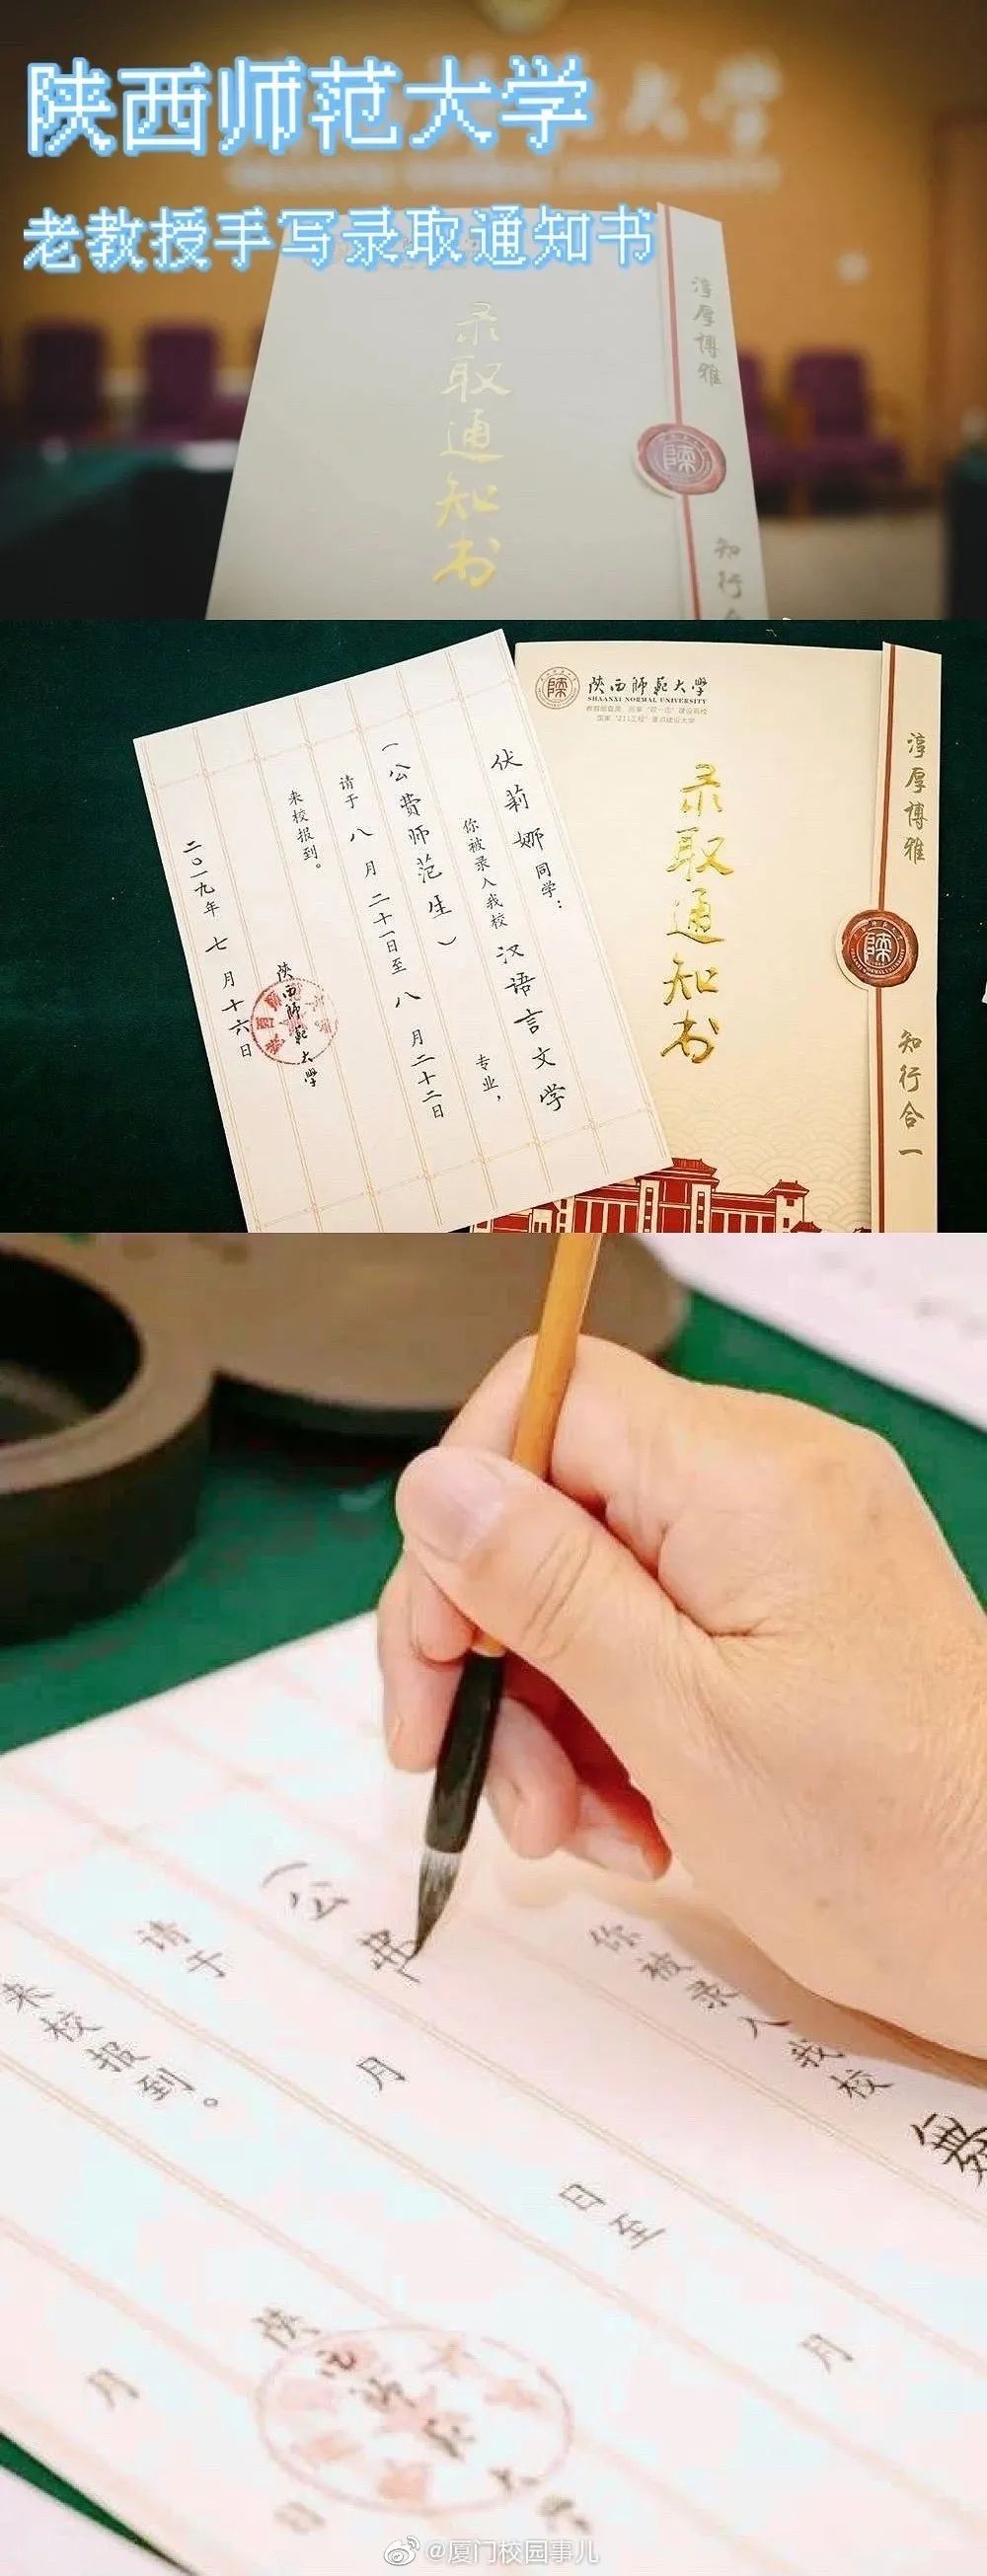 陕西师范大学
老教授手写录取通知书
录取通知书
淳厚博雅
知行
陕西师范大学
SHAANXI NORMAL UNIVERSITY
教育部直属 国家“双一流”建设高校
国家“211工程”重点建设大学
录取通知书
淳厚博雅
知行合一
伏莉娜同学：
你被录入我校汉语言文学专业，
（公费师范生）
请于八月二十一日至八月二十二日
来校报到。
陕西师范大学
二〇一九年七月十六日
你被录入我校
（公费
请于 月 日至 月
来校报到。
陕西师范大学
月 日
@厦门校园事儿